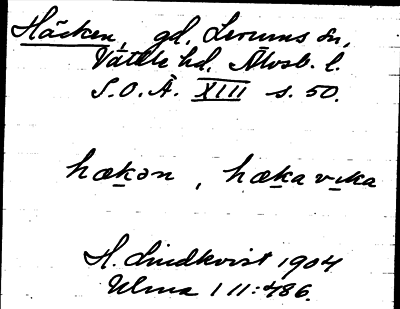 Häcken, gd, Lerums sn,
Vättle hd. Älvsb. l.
S.O.Ä. XIII s. 50.
hækən, hækavika
H. Lindkvist 1904
Ulma 111:486.